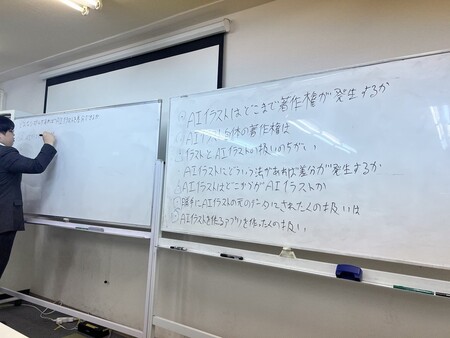 AIイラストはどこまで著作権が発生するか
AIイラスト自体の著作権は
イラストとAIイラストの扱いのちがい
AIイラストにどういう法があれば差分が発生するか
AIイラストはどこからがAIイラストか
勝手にAIイラストの元のデータにされた人の扱いは
AIイラストを作るアプリを作った人の扱い